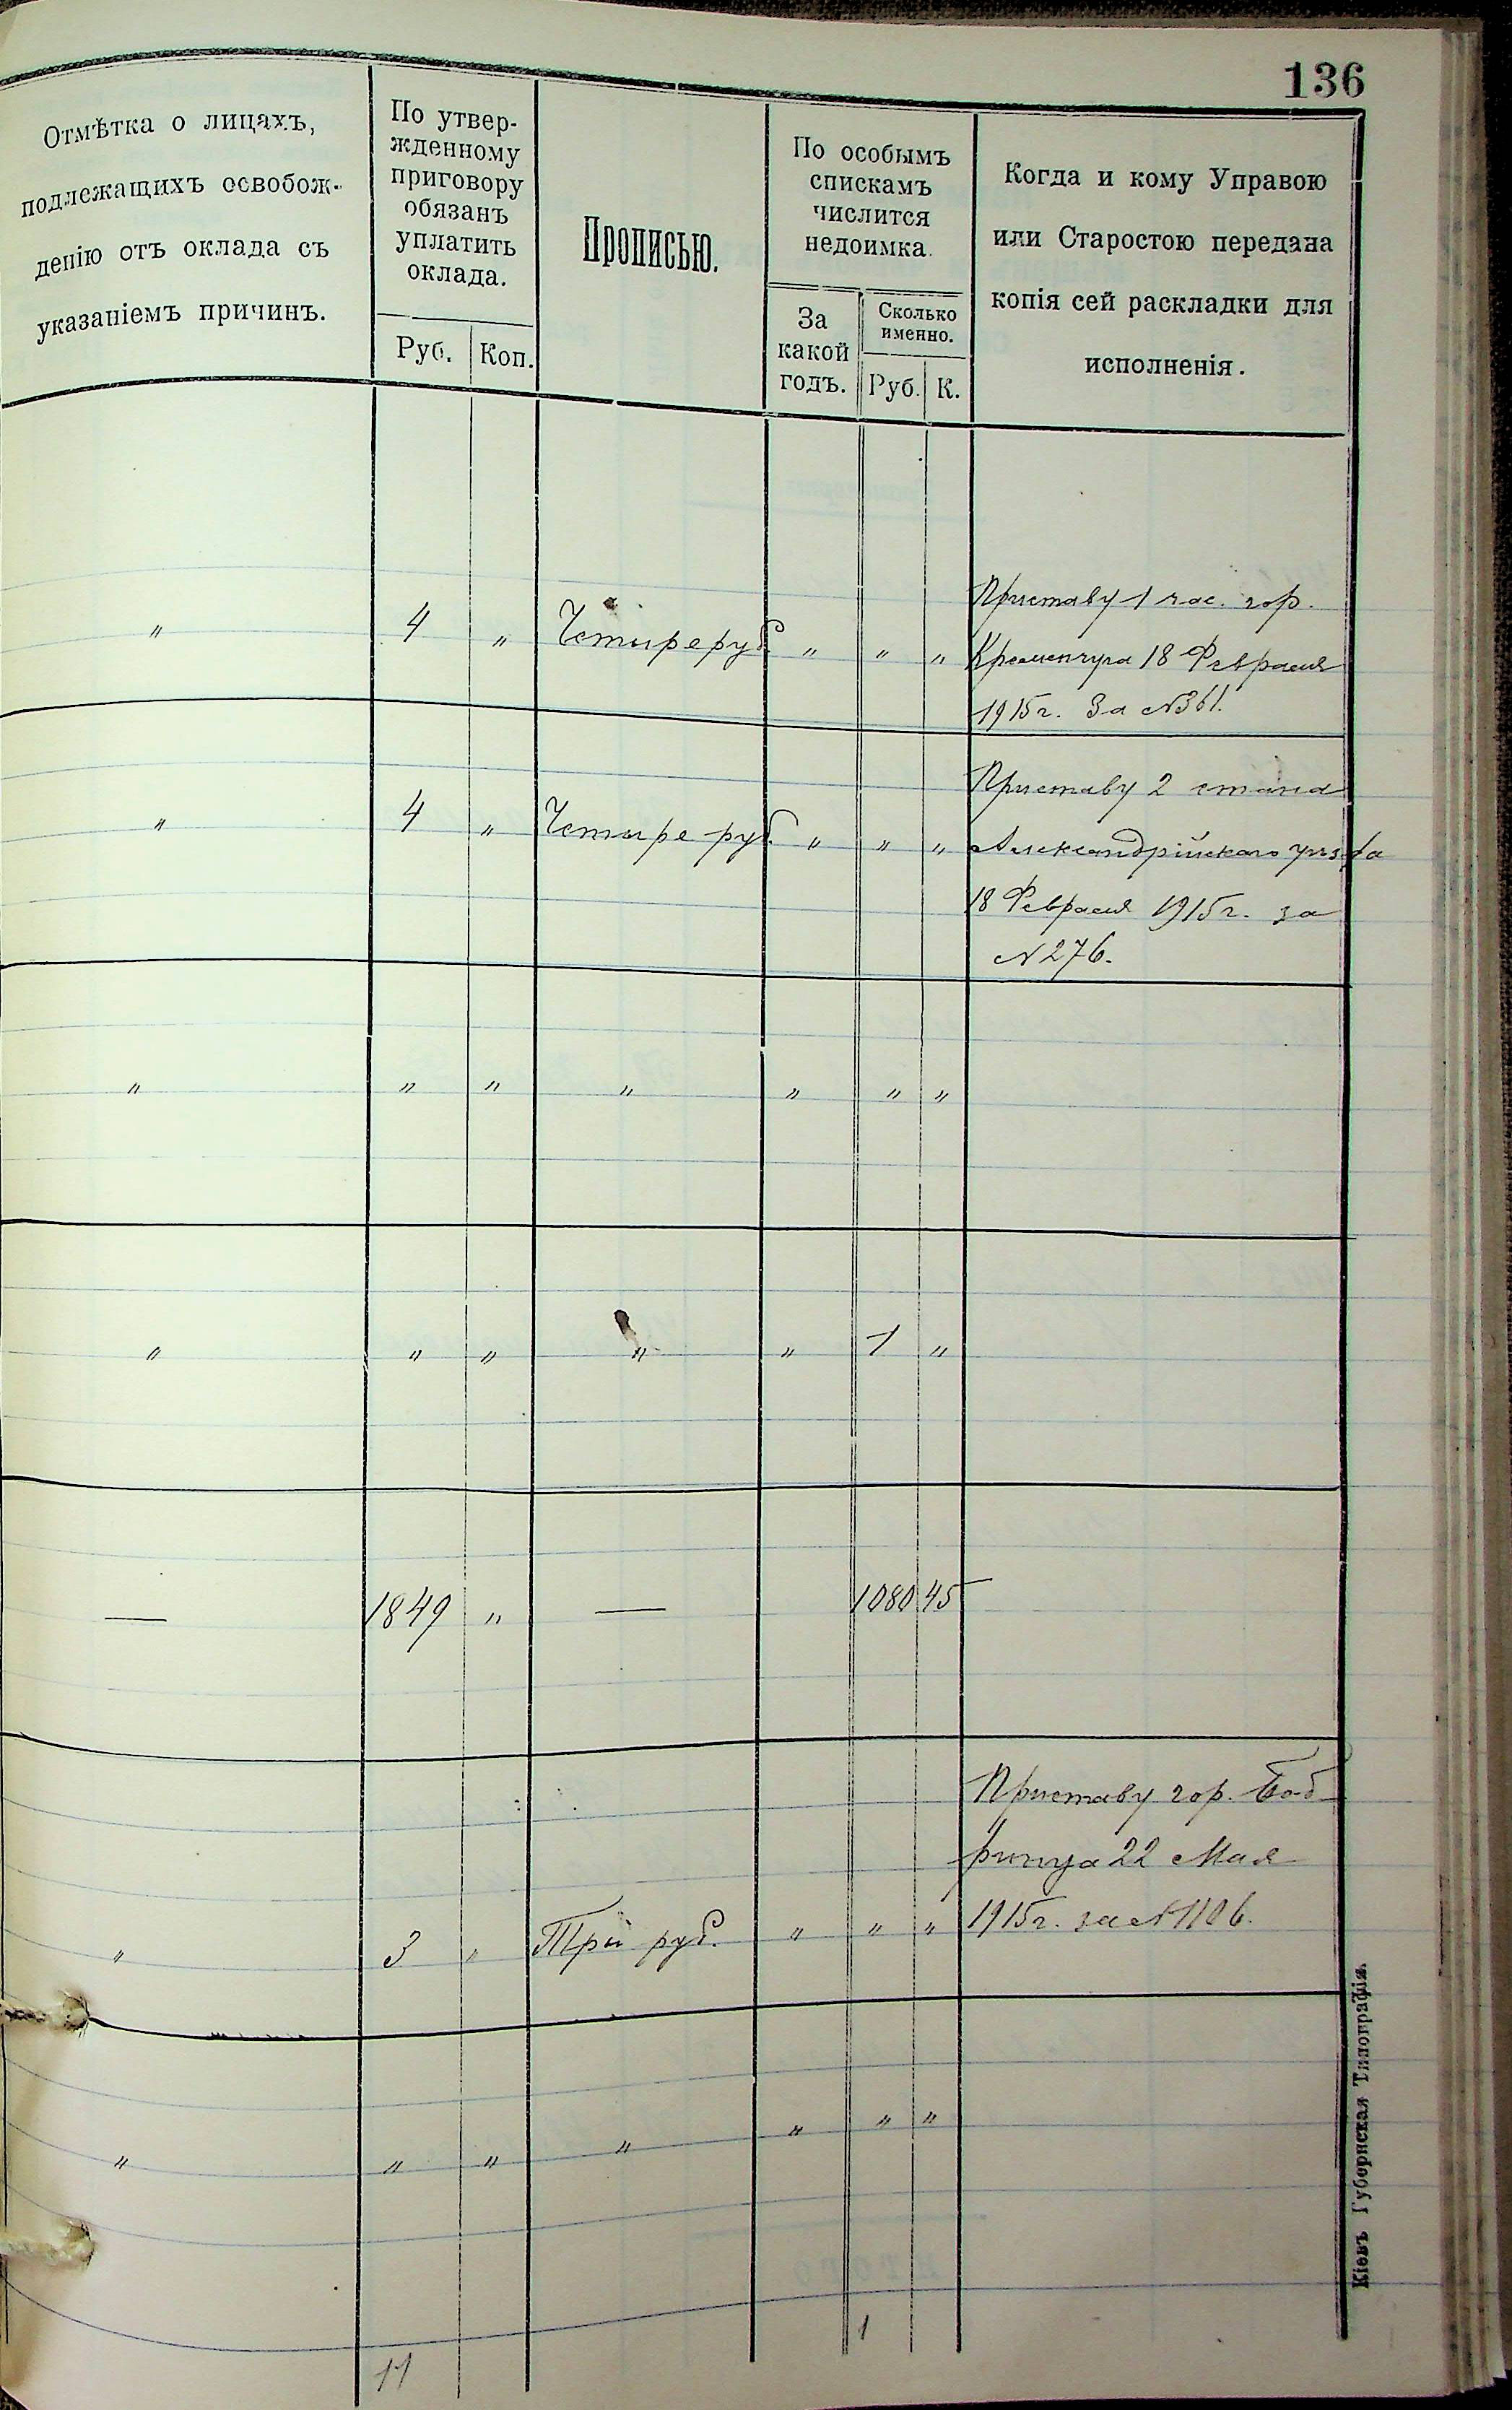 136
Отмѣтка о лицахъ,
подлежащихъ освобож-
денію отъ оклада съ
указаніемъ причинъ.
По утвер-
жденному
приговору
обязанъ
уплатить
оклада.
Руб. Коп.
Прописью.
По особымъ
спискамъ
числится
недоимка.
За
какой
годъ.
Сколько
именно.
Руб. К.
Когда и кому Управою
или Старостою передана
копія сей раскладки для
исполненія.
" 4 " Четыре руб. " " "
Приставу 1 час. гор.
Кременчуга 18 Февраля
1915 г. За №361.
" 4 " Четыре руб. " " "
Приставу 2 стана
Александрійскаго уѣзда
18 Февраля 1915 г. за
№276.
" " " " " " "
" " " " " 1 "
— 1849 " — 1080 45
" 3 " Три руб. " " "
Приставу гор. Боб
ринца 22 Мая
1915 г. за №1106.
" " " " " " "
11 1
Кіевъ Губернская Типографія.